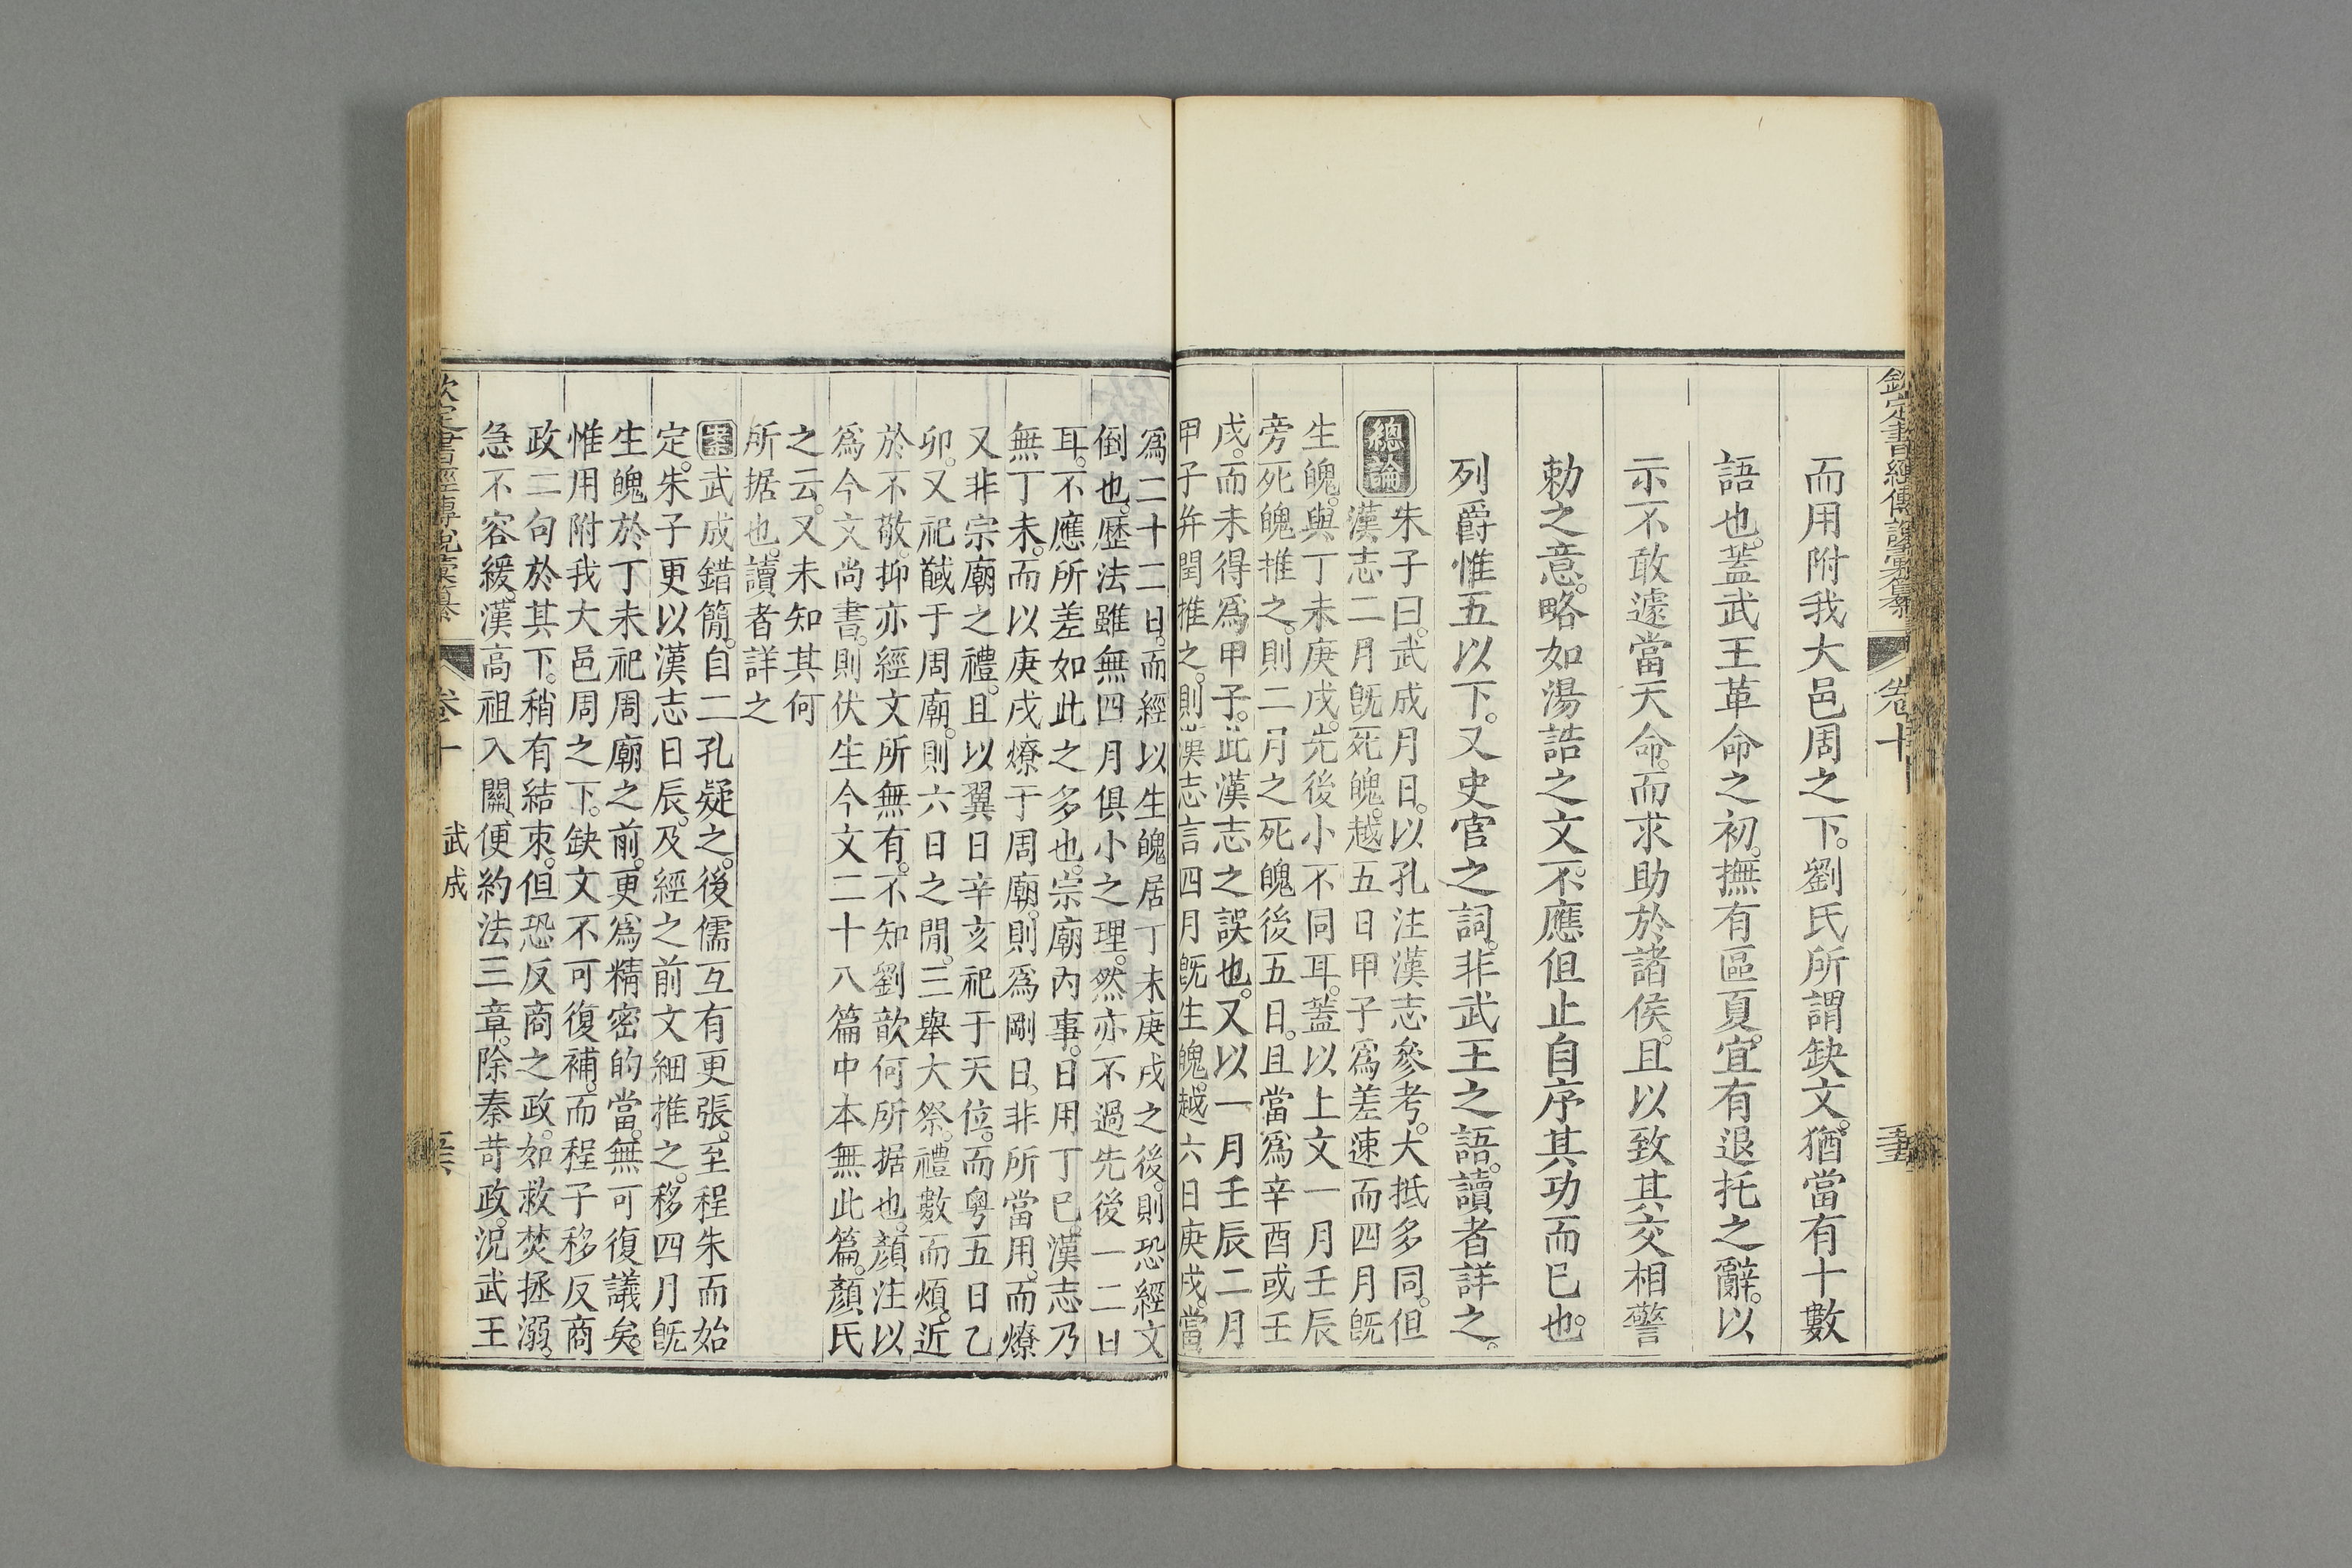 欽定書經傳說彙纂
卷十
而用附我大邑周之下。劉氏所謂缺文。猶當有十數
語也。蓋武王革命之初。撫有區夏。宜有退托之辭。以
示不敢遽當天命。而求助於諸侯。且以致其交相警
勅之意。略如湯誥之文。不應但止自序其功而已也。
列爵惟五以下。又史官之詞。非武王之語。讀者詳之。
總論
朱子曰。武成月日。以孔注漢志參考。大抵多同。但
漢志二月旣死魄。越五日甲子爲差速。而四月旣
生魄。與丁未庚戌。先後小不同耳。蓋以上文一月壬辰
旁死魄推之。則二月之死魄後五日。且當爲辛酉或壬
戌。而未得爲甲子。此漢志之誤也。又以一月壬辰二月
甲子幷閏推之。則漢志言四月旣生魄。越六日庚戌。當
爲二十二日。而經以生魄居丁未庚戌之後。則恐經文
倒也。歷法雖無四月俱小之理。然亦不過先後一二日
耳。不應所差如此之多也。宗廟內事。日用丁巳。漢志乃
無丁未。而以庚戌燎于周廟。則爲剛日。非所當用。而燎
又非宗廟之禮。且以翼日辛亥祀于天位。而粵五日乙
卯。又祀馘于周廟。則六日之閒。三舉大祭。禮數而煩。近
於不敬。抑亦經文所無有。不知劉歆何所据也。顏注以
爲今文尚書。則伏生今文二十八篇中本無此篇。顏氏
之云。又未知其何
所据也。讀者詳之
案武成錯簡。自二孔疑之。後儒互有更張。至程朱而始
定。朱子更以漢志日辰。及經之前文細推之。移四月旣
生魄於丁未祀周廟之前。更爲精密的當。無可復議矣。
惟用附我大邑周之下。缺文不可復補。而程子移反商
政二句於其下。稍有結束。但恐反商之政。如救焚拯溺。
急不容緩。漢高祖入關。便約法三章。除秦苛政。況武王
欽定書經傳說彙纂
卷十
武成